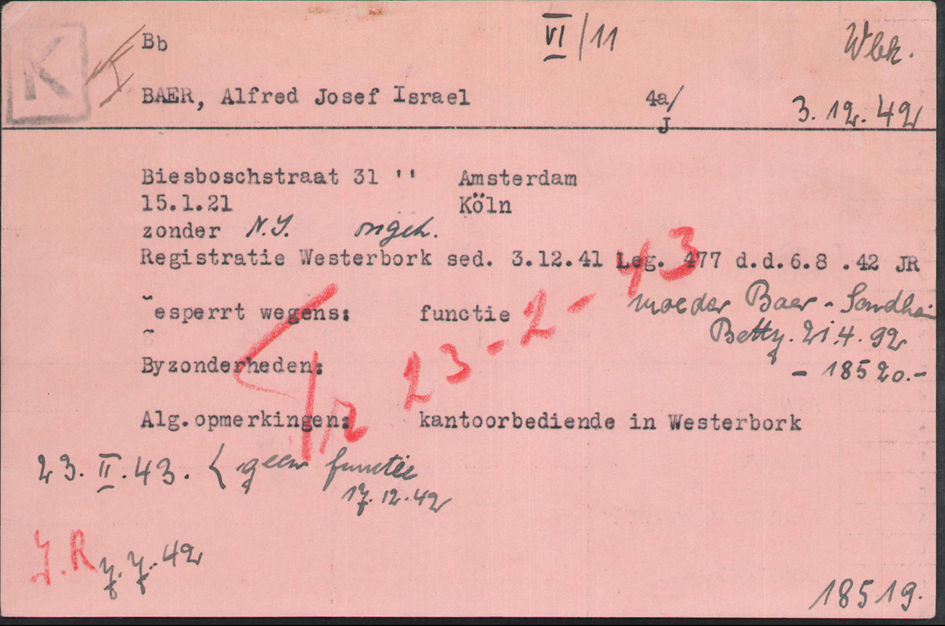 K
Bb
VI/11
Wbk.
BAER, Alfred Josef Israel 4a/J 3.12.42
Biesboschstraat 31 '' Amsterdam
15.1.21 Köln
zonder N.I. ongeh.
Registratie Westerbork sed. 3.12.41 Leg. 477 d.d.6.8 .42 JR
esperrt wegens: functie
moeder Baer - Sondhei
Betty. 21.4.92
- 18520.-
Byzonderheden:
23-2-43
Alg.opmerkingen: kantoorbediende in Westerbork
23.II.43. geen functie
17.12.42
J.R 7.7.42
18519.